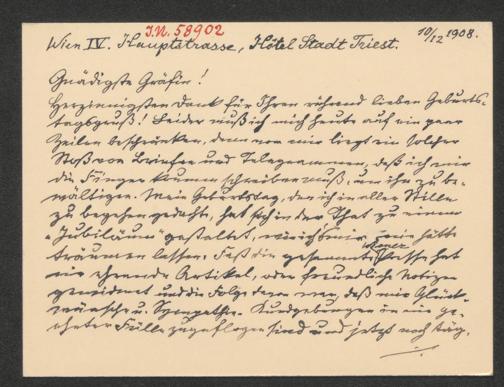 I.N. 58902
Wien IV. Hauptstrasse, Hôtel Stadt Triest. 10/12 1908.
Gnädigste Gräfin!
Herzinnigsten Dank für Ihren rührend lieben Geburts-
tagsgruß! Leider muß ich mich heute auf ein paar
Zeilen beschränken, denn vor mir liegt ein solcher
Stoß von Briefen und Telegrammen, daß ich mir
die Finger krumm schreiben muß, um ihn zu be-
wältigen. Mein Geburtstag, den ich in aller Stille
zu begehen gedachte, hat sich in der That zu einem
„Jubiläum“ gestaltet, wie ich's mir nie hätte
träumen lassen. Fast die gesammte Wiener Presse hat
mir ehrende Artikel, oder freundliche Notizen
gewidmet und die Folge davon war, daß mir Glück-
wünsche u. Sympathie-Kundgebungen in nie ge-
ahnter Fülle zugeflogen sind und jetzt noch täg-